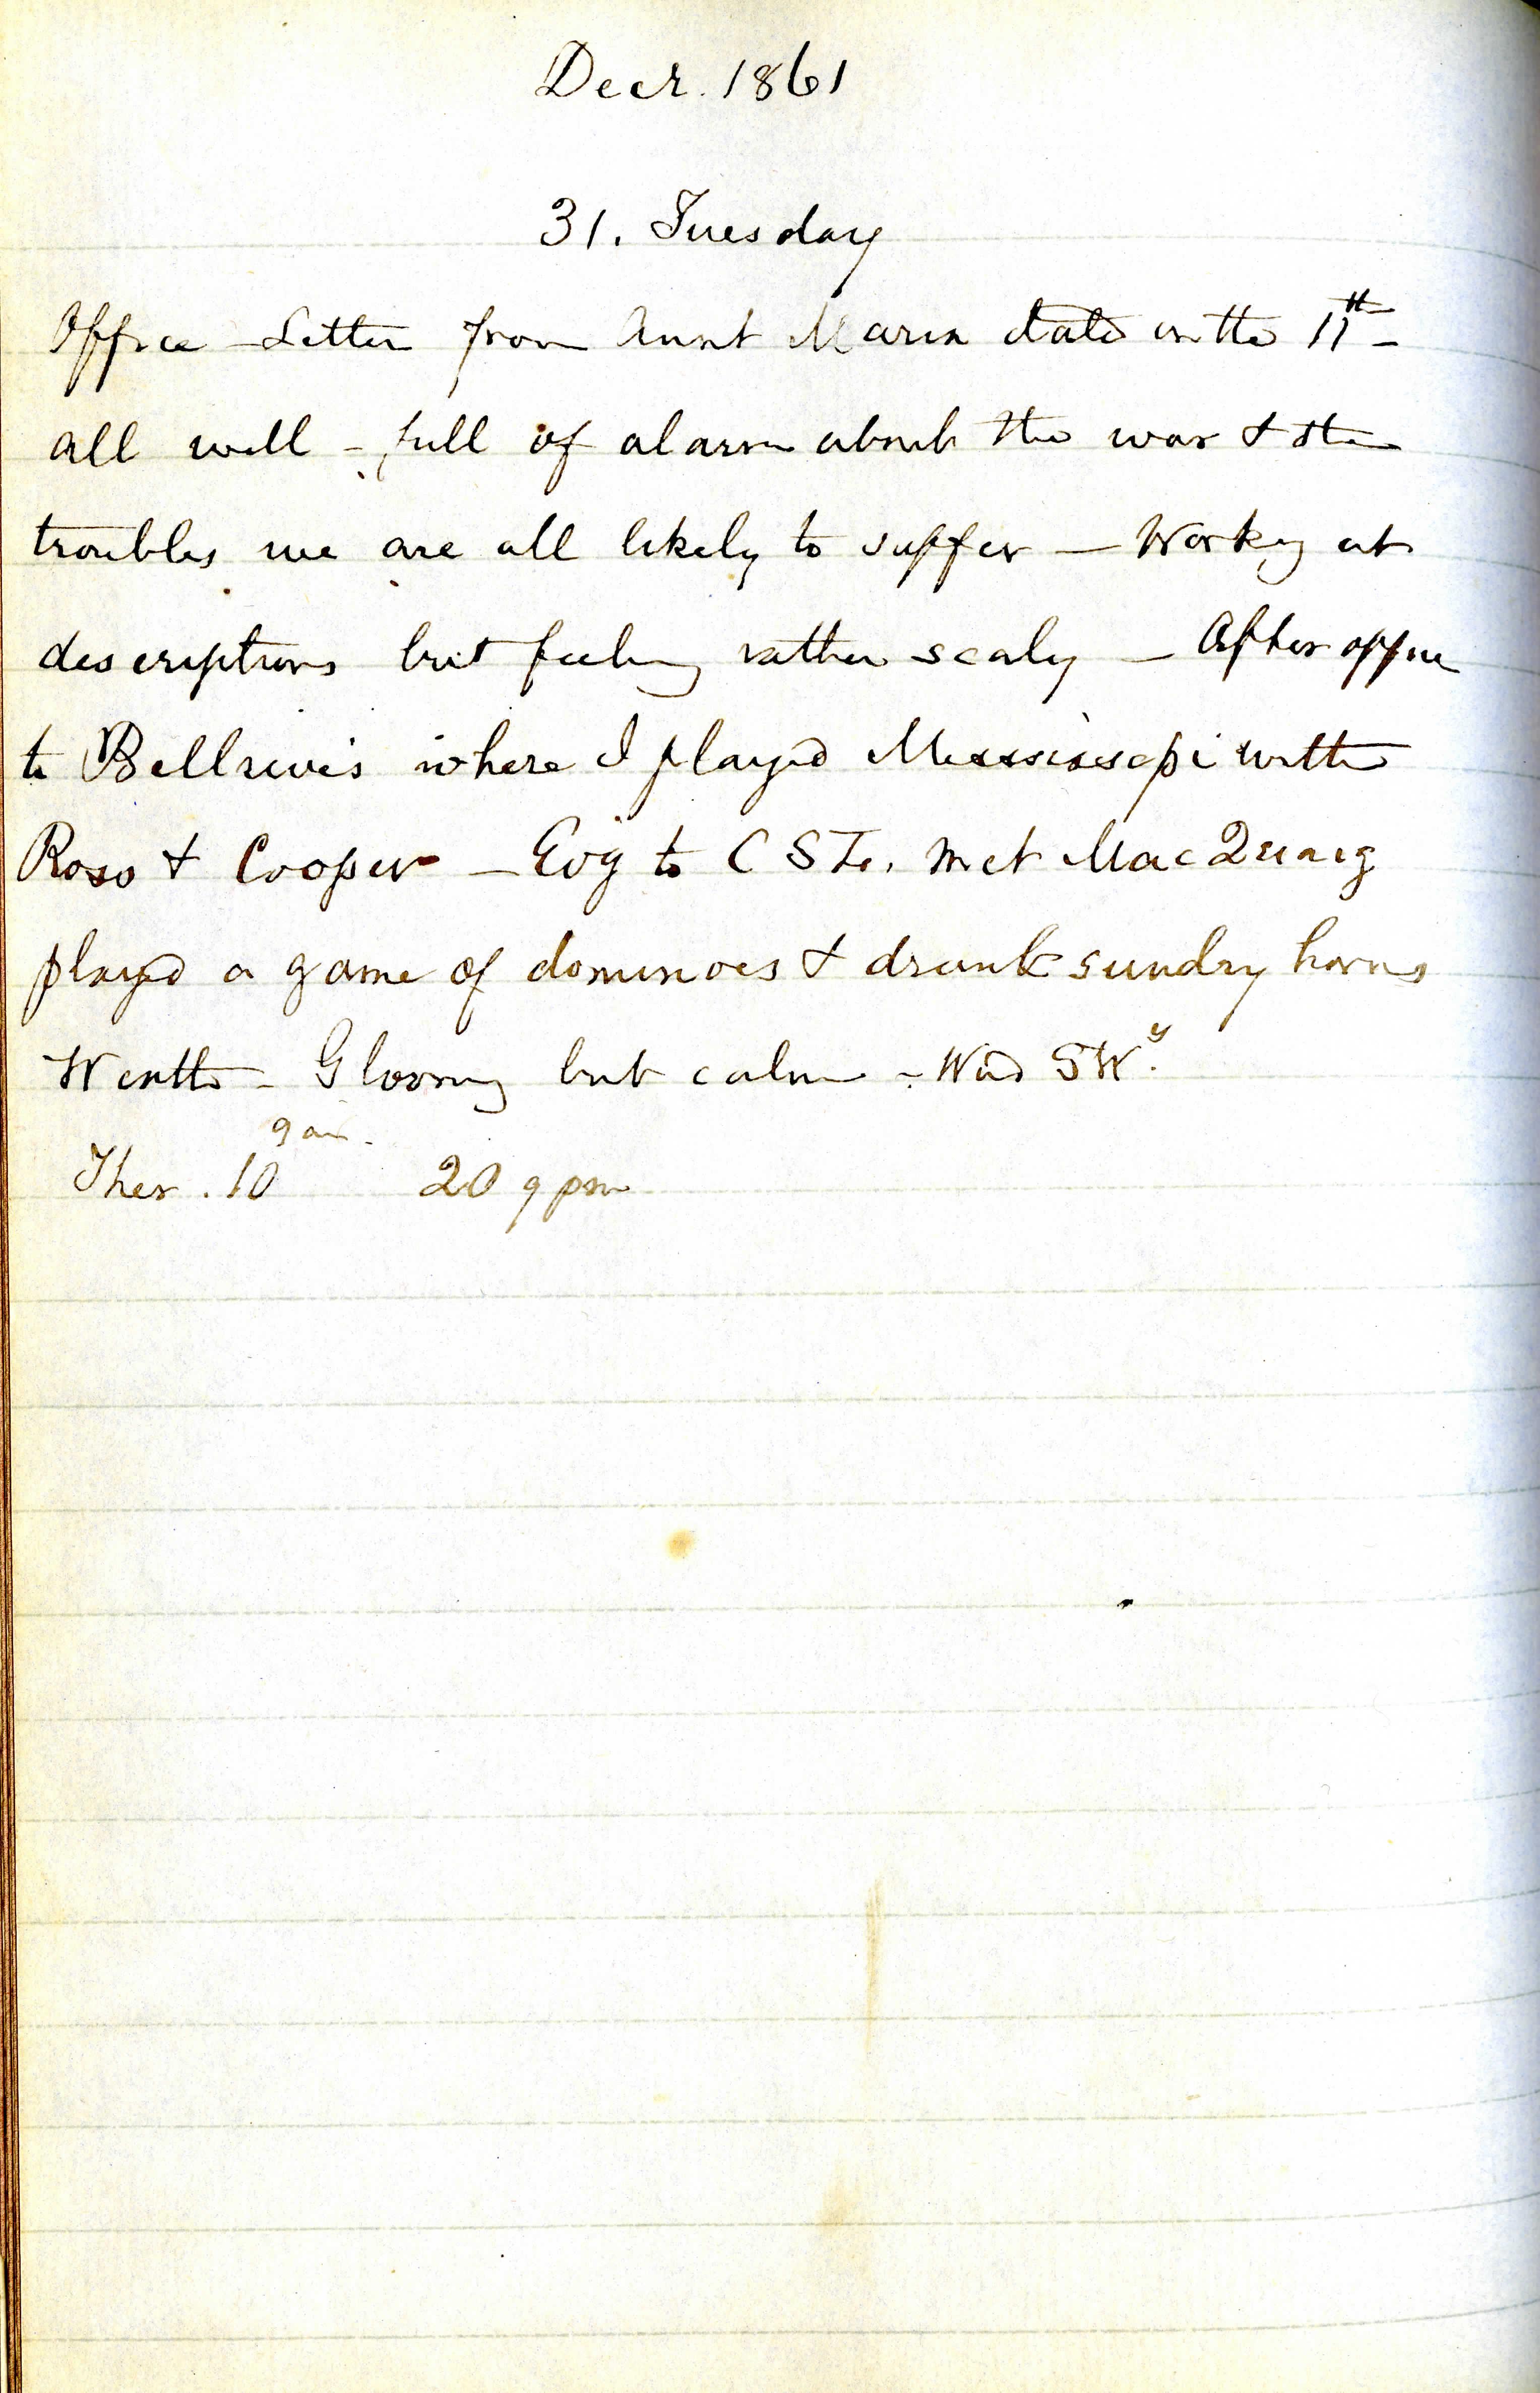 Decr. 1861
31. Tuesday
Office - Letter from Aunt Maria date on the 11th -
all well - full of alarm about the war & the
troubles we are all likely to suffer - Workg at
descriptions but feeling rather scaly - After office
to where I played Mississippi with
Ross & Cooper - Evg to C S Met MacQuaig
played a game of dominoes & drank sundry horns
Weath - Gloomy but calm - Wind SWy.
9 am.
Ther. 10 20 9 pm